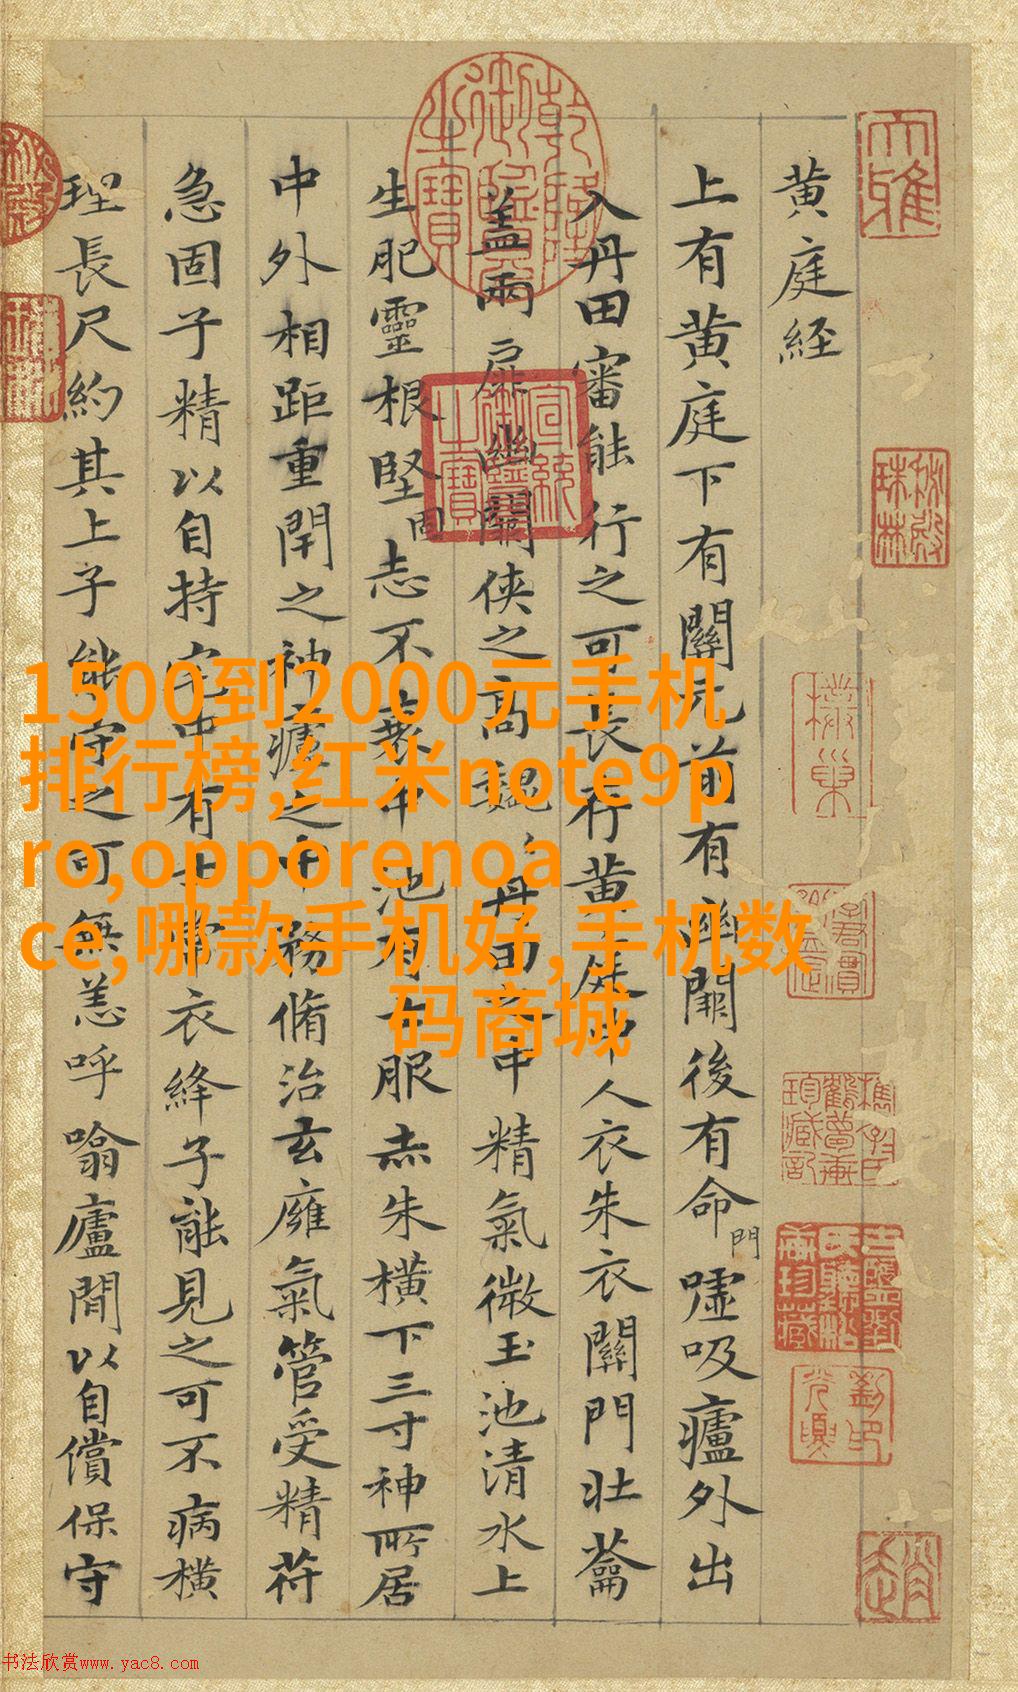 黄庭経
上有黄庭下有關元前有幽關後有命門嘘吸廬外出
入丹田審能行之可長行黄庭中人衣朱衣關門壯蘥
盖兩扉幽關俠之高巍々丹田之中精氣微玉池清水上
生肥靈根堅固志不衰中池有士服赤朱横下三寸神所居
中外相距重閇之神廬之中務脩治玄癰氣管受精苻
急固子精以自持宅中有士常衣絳子能見之可不病横
理長尺約其上子能守之可無恙呼噏廬間以自償保守
乾隆御覽之寶
宣統御覽之寶
大雅
秘殿珠林
1500到2000元手机
排行榜,红米note9p
ro,opporenoa
ce,哪款手机好,手机数
码商城
书法欣赏www.yac8.com